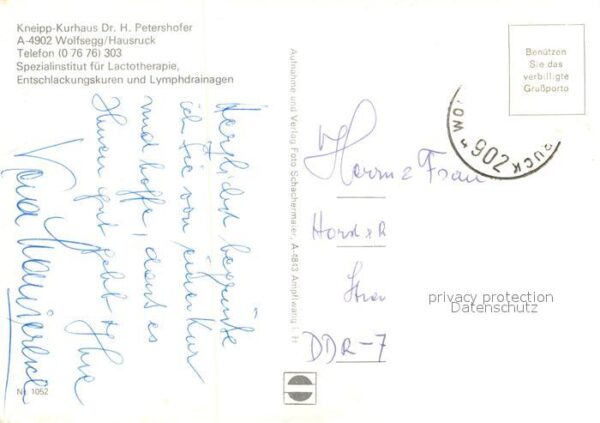 Kneipp-Kurhaus Dr. H. Petershofer
A-4902 Wolfsegg/Hausruck
Telefon (0 76 76) 303
Spezialinstitut für Lactotherapie,
Entschlackungskuren und Lymphdrainagen
Herzlichst begrüße
ich Sie von einer Kur
und hoffe, dass es
Ihnen gut geht
Ihre
Nr. 1052
Aufnahme und Verlag Foto Schachermaier, A-4843 Ampflwang i. H.
Benützen
Sie das
verbilligte
Grußporto
902
Herrn & Frau
DDR-7
privacy protection
Datenschutz